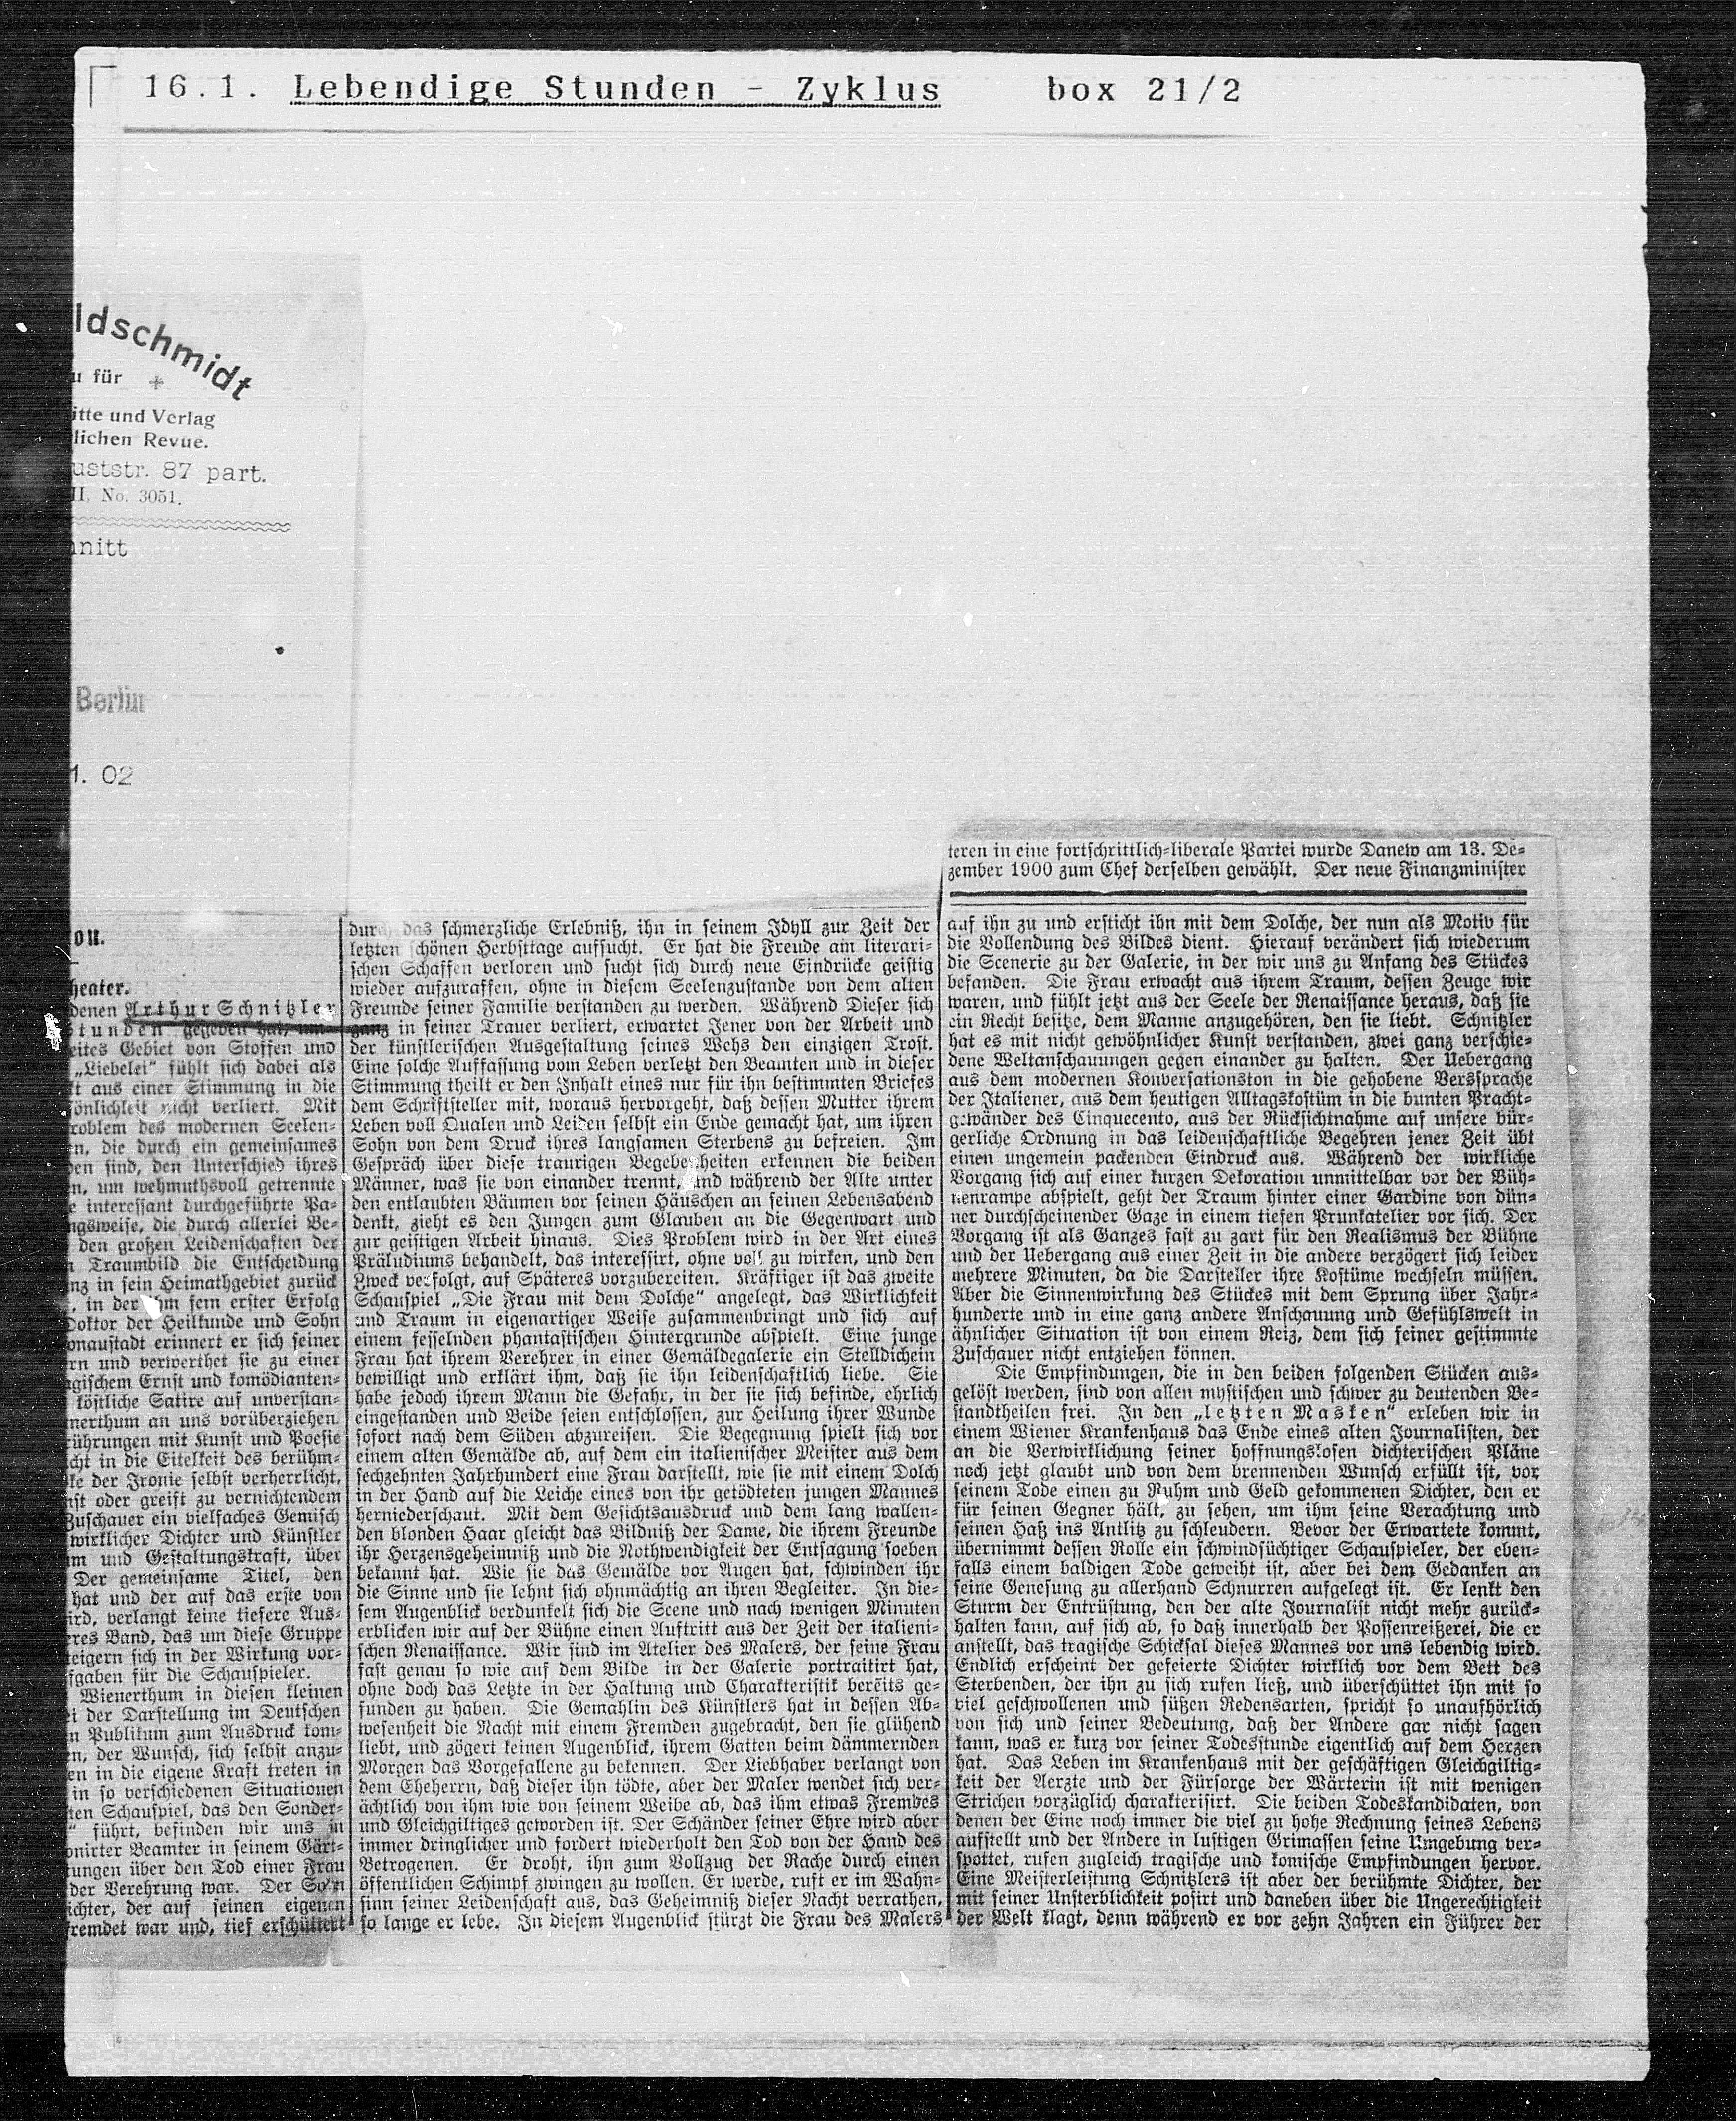 16.1. Lebendige Stunden - Zyklus box 21/2
ldschmidt
u für
itte und Verlag
lichen Revue.
uststr. 87 part.
II, No. 3051.
nitt
Berlin
1. 02
on.
heater.
denen Arthur Schnitzler
Stunden gegeben hat, um
eites Gebiet von Stoffen und
„Liebelei“ fühlt sich dabei als
kt aus einer Stimmung in die
sönlichkeit nicht verliert. Mit
roblem des modernen Seelen-
en, die durch ein gemeinsames
den sind, den Unterschied ihres
n, um wehmuthsvoll getrennte
e interessant durchgeführte Pa-
ngsweise, die durch allerlei Be-
den großen Leidenschaften der
n Traumbild die Entscheidung
nz in sein Heimathgebiet zurück
, in der ihm sein erster Erfolg
Doktor der Heilkunde und Sohn
onaustadt erinnert er sich seiner
rn und verwerthet sie zu einer
agischem Ernst und komödianten-
köstliche Satire auf unverstan-
nerthum an uns vorüberziehen.
rührungen mit Kunst und Poesie
icht in die Eitelkeit des berühm-
ke der Ironie selbst verherrlicht,
nst oder greift zu vernichtendem
Zuschauer ein vielfaches Gemisch
wirklicher Dichter und Künstler
um und Gestaltungskraft, über
Der gemeinsame Titel, den
hat und der auf das erste von
ird, verlangt keine tiefere Aus-
eres Band, das um diese Gruppe
teigern sich in der Wirkung vor-
fgaben für die Schauspieler.
Wienerthum in diesen kleinen
ei der Darstellung im Deutschen
n Publikum zum Ausdruck kom-
en, der Wunsch, sich selbst anzu-
en in die eigene Kraft treten in
in so verschiedenen Situationen
ten Schauspiel, das den Sonder-
“ führt, befinden wir uns in
onirter Beamter in seinem Gärt-
tungen über den Tod einer Frau
der Verehrung war. Der Sohn
ichter, der auf seinen eigenen
fremdet war und, tief erschüttert
durch das schmerzliche Erlebniß, ihn in seinem Idyll zur Zeit der
letzten schönen Herbsttage aufsucht. Er hat die Freude am literari-
schen Schaffen verloren und sucht sich durch neue Eindrücke geistig
wieder aufzuraffen, ohne in diesem Seelenzustande von dem alten
Freunde seiner Familie verstanden zu werden. Während Dieser sich
ganz in seiner Trauer verliert, erwartet Jener von der Arbeit und
der künstlerischen Ausgestaltung seines Wehs den einzigen Trost.
Eine solche Auffassung vom Leben verletzt den Beamten und in dieser
Stimmung theilt er den Inhalt eines nur für ihn bestimmten Briefes
dem Schriftsteller mit, woraus hervorgeht, daß dessen Mutter ihrem
Leben voll Qualen und Leiden selbst ein Ende gemacht hat, um ihren
Sohn von dem Druck ihres langsamen Sterbens zu befreien. Im
Gespräch über diese traurigen Begebenheiten erkennen die beiden
Männer, was sie von einander trennt, und während der Alte unter
den entlaubten Bäumen vor seinen Häuschen an seinen Lebensabend
denkt, zieht es den Jungen zum Glauben an die Gegenwart und
zur geistigen Arbeit hinaus. Dies Problem wird in der Art eines
Präludiums behandelt, das interessirt, ohne voll zu wirken, und den
Zweck verfolgt, auf Späteres vorzubereiten. Kräftiger ist das zweite
Schauspiel „Die Frau mit dem Dolche“ angelegt, das Wirklichkeit
und Traum in eigenartiger Weise zusammenbringt und sich auf
einem fesselnden phantastischen Hintergrunde abspielt. Eine junge
Frau hat ihrem Verehrer in einer Gemäldegalerie ein Stelldichein
bewilligt und erklärt ihm, daß sie ihn leidenschaftlich liebe. Sie
habe jedoch ihrem Mann die Gefahr, in der sie sich befinde, ehrlich
eingestanden und Beide seien entschlossen, zur Heilung ihrer Wunde
sofort nach dem Süden abzureisen. Die Begegnung spielt sich vor
einem alten Gemälde ab, auf dem ein italienischer Meister aus dem
sechzehnten Jahrhundert eine Frau darstellt, wie sie mit einem Dolch
in der Hand auf die Leiche eines von ihr getödteten jungen Mannes
herniederschaut. Mit dem Gesichtsausdruck und dem lang wallen-
den blonden Haar gleicht das Bildniß der Dame, die ihrem Freunde
ihr Herzensgeheimniß und die Nothwendigkeit der Entsagung soeben
bekannt hat. Wie sie das Gemälde vor Augen hat, schwinden ihr
die Sinne und sie lehnt sich ohnmächtig an ihren Begleiter. In die-
sem Augenblick verdunkelt sich die Scene und nach wenigen Minuten
erblicken wir auf der Bühne einen Auftritt aus der Zeit der italieni-
schen Renaissance. Wir sind im Atelier des Malers, der seine Frau
fast genau so wie auf dem Bilde in der Galerie portraitirt hat,
ohne doch das Letzte in der Haltung und Charakteristik bereits ge-
funden zu haben. Die Gemahlin des Künstlers hat in dessen Ab-
wesenheit die Nacht mit einem Fremden zugebracht, den sie glühend
liebt, und zögert keinen Augenblick, ihrem Gatten beim dämmernden
Morgen das Vorgefallene zu bekennen. Der Liebhaber verlangt von
dem Eheherrn, daß dieser ihn tödte, aber der Maler wendet sich ver-
ächtlich von ihm wie von seinem Weibe ab, das ihm etwas Fremdes
und Gleichgiltiges geworden ist. Der Schänder seiner Ehre wird aber
immer dringlicher und fordert wiederholt den Tod von der Hand des
Betrogenen. Er droht, ihn zum Vollzug der Rache durch einen
öffentlichen Schimpf zwingen zu wollen. Er werde, ruft er im Wahn-
sinn seiner Leidenschaft aus, das Geheimniß dieser Nacht verrathen,
so lange er lebe. In diesem Augenblick stürzt die Frau des Malers
teren in eine fortschrittlich-liberale Partei wurde Danew am 13. De-
zember 1900 zum Chef derselben gewählt. Der neue Finanzminister
auf ihn zu und ersticht ihn mit dem Dolche, der nun als Motiv für
die Vollendung des Bildes dient. Hierauf verändert sich wiederum
die Scenerie zu der Galerie, in der wir uns zu Anfang des Stückes
befanden. Die Frau erwacht aus ihrem Traum, dessen Zeuge wir
waren, und fühlt jetzt aus der Seele der Renaissance heraus, daß sie
ein Recht besitze, dem Manne anzugehören, den sie liebt. Schnitzler
hat es mit nicht gewöhnlicher Kunst verstanden, zwei ganz verschie-
dene Weltanschauungen gegen einander zu halten. Der Uebergang
aus dem modernen Konversationston in die gehobene Verssprache
der Italiener, aus dem heutigen Alltagskostüm in die bunten Pracht-
gewänder des Cinquecento, aus der Rücksichtnahme auf unsere bür-
gerliche Ordnung in das leidenschaftliche Begehren jener Zeit übt
einen ungemein packenden Eindruck aus. Während der wirkliche
Vorgang sich auf einer kurzen Dekoration unmittelbar vor der Büh-
nenrampe abspielt, geht der Traum hinter einer Gardine von dün-
ner durchscheinender Gaze in einem tiefen Prunkatelier vor sich. Der
Vorgang ist als Ganzes fast zu zart für den Realismus der Bühne
und der Uebergang aus einer Zeit in die andere verzögert sich leider
mehrere Minuten, da die Darsteller ihre Kostüme wechseln müssen.
Aber die Sinnenwirkung des Stückes mit dem Sprung über Jahr-
hunderte und in eine ganz andere Anschauung und Gefühlswelt in
ähnlicher Situation ist von einem Reiz, dem sich feiner gestimmte
Zuschauer nicht entziehen können.
Die Empfindungen, die in den beiden folgenden Stücken aus-
gelöst werden, sind von allen mystischen und schwer zu deutenden Be-
standtheilen frei. In den „letzten Masken“ erleben wir in
einem Wiener Krankenhaus das Ende eines alten Journalisten, der
an die Verwirklichung seiner hoffnungslosen dichterischen Pläne
noch jetzt glaubt und von dem brennenden Wunsch erfüllt ist, vor
seinem Tode einen zu Ruhm und Geld gekommenen Dichter, den er
für seinen Gegner hält, zu sehen, um ihm seine Verachtung und
seinen Haß ins Antlitz zu schleudern. Bevor der Erwartete kommt,
übernimmt dessen Rolle ein schwindsüchtiger Schauspieler, der eben-
falls einem baldigen Tode geweiht ist, aber bei dem Gedanken an
seine Genesung zu allerhand Schnurren aufgelegt ist. Er lenkt den
Sturm der Entrüstung, den der alte Journalist nicht mehr zurück-
halten kann, auf sich ab, so daß innerhalb der Possenreißerei, die er
anstellt, das tragische Schicksal dieses Mannes vor uns lebendig wird.
Endlich erscheint der gefeierte Dichter wirklich vor dem Bett des
Sterbenden, der ihn zu sich rufen ließ, und überschüttet ihn mit so
viel geschwollenen und süßen Redensarten, spricht so unaufhörlich
von sich und seiner Bedeutung, daß der Andere gar nicht sagen
kann, was er kurz vor seiner Todesstunde eigentlich auf dem Herzen
hat. Das Leben im Krankenhaus mit der geschäftigen Gleichgiltig-
keit der Aerzte und der Fürsorge der Wärterin ist mit wenigen
Strichen vorzüglich charakterisirt. Die beiden Todeskandidaten, von
denen der Eine noch immer die viel zu hohe Rechnung seines Lebens
aufstellt und der Andere in lustigen Grimassen seine Umgebung ver-
spottet, rufen zugleich tragische und komische Empfindungen hervor.
Eine Meisterleistung Schnitzlers ist aber der berühmte Dichter, der
mit seiner Unsterblichkeit posirt und daneben über die Ungerechtigkeit
der Welt klagt, denn während er vor zehn Jahren ein Führer der